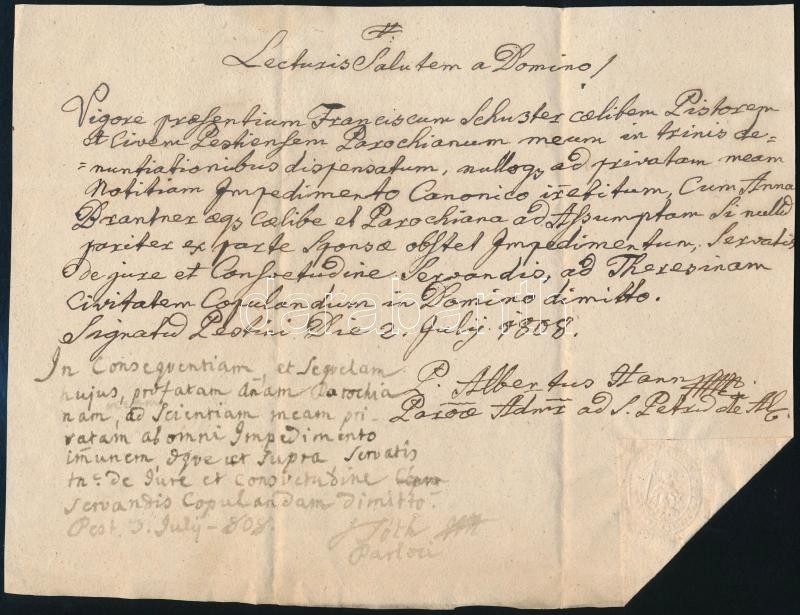 Lecturis Salutem a Domino!
Vigore præsentium Franciscum Schuster cælibem Pistorem
et Civem Pestiensem Parochianum meum in trinis de-
=nuntiationibus dispensatum, nulloqȝ ad privatam meam
Notitiam Impedimento Canonico irretitum, Cum Anna
Brantner æqȝ cælibe et Parochiana ad Assumptam Si nullũ
pariter ex parte Sponsæ obstet Impedimentum, Servatis
de jure et Consvetudine Servandis, ad Theresinam
Civitatem Copulandum in Domino dimitto.
Signatũ Pestini Die 2. Julij 1808.
P. Albertus Hann
Paroæ Admr ad S. Petrũ de Al.
In Conseqventiam, et Seqvelam
hujus, præfatam dnam Parochia
nam, ad Scientiam meam pri
vatam ab omni Impedimento
im̃unem, æque ut supra Servatis
tn. de Jure et Consvetudine
Servandis Copulandam dimitto.
Pest 3. July - 808.
Tóth
Par loci
darabanth